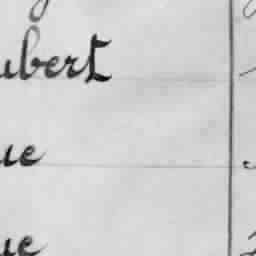 ubert
ue
ue